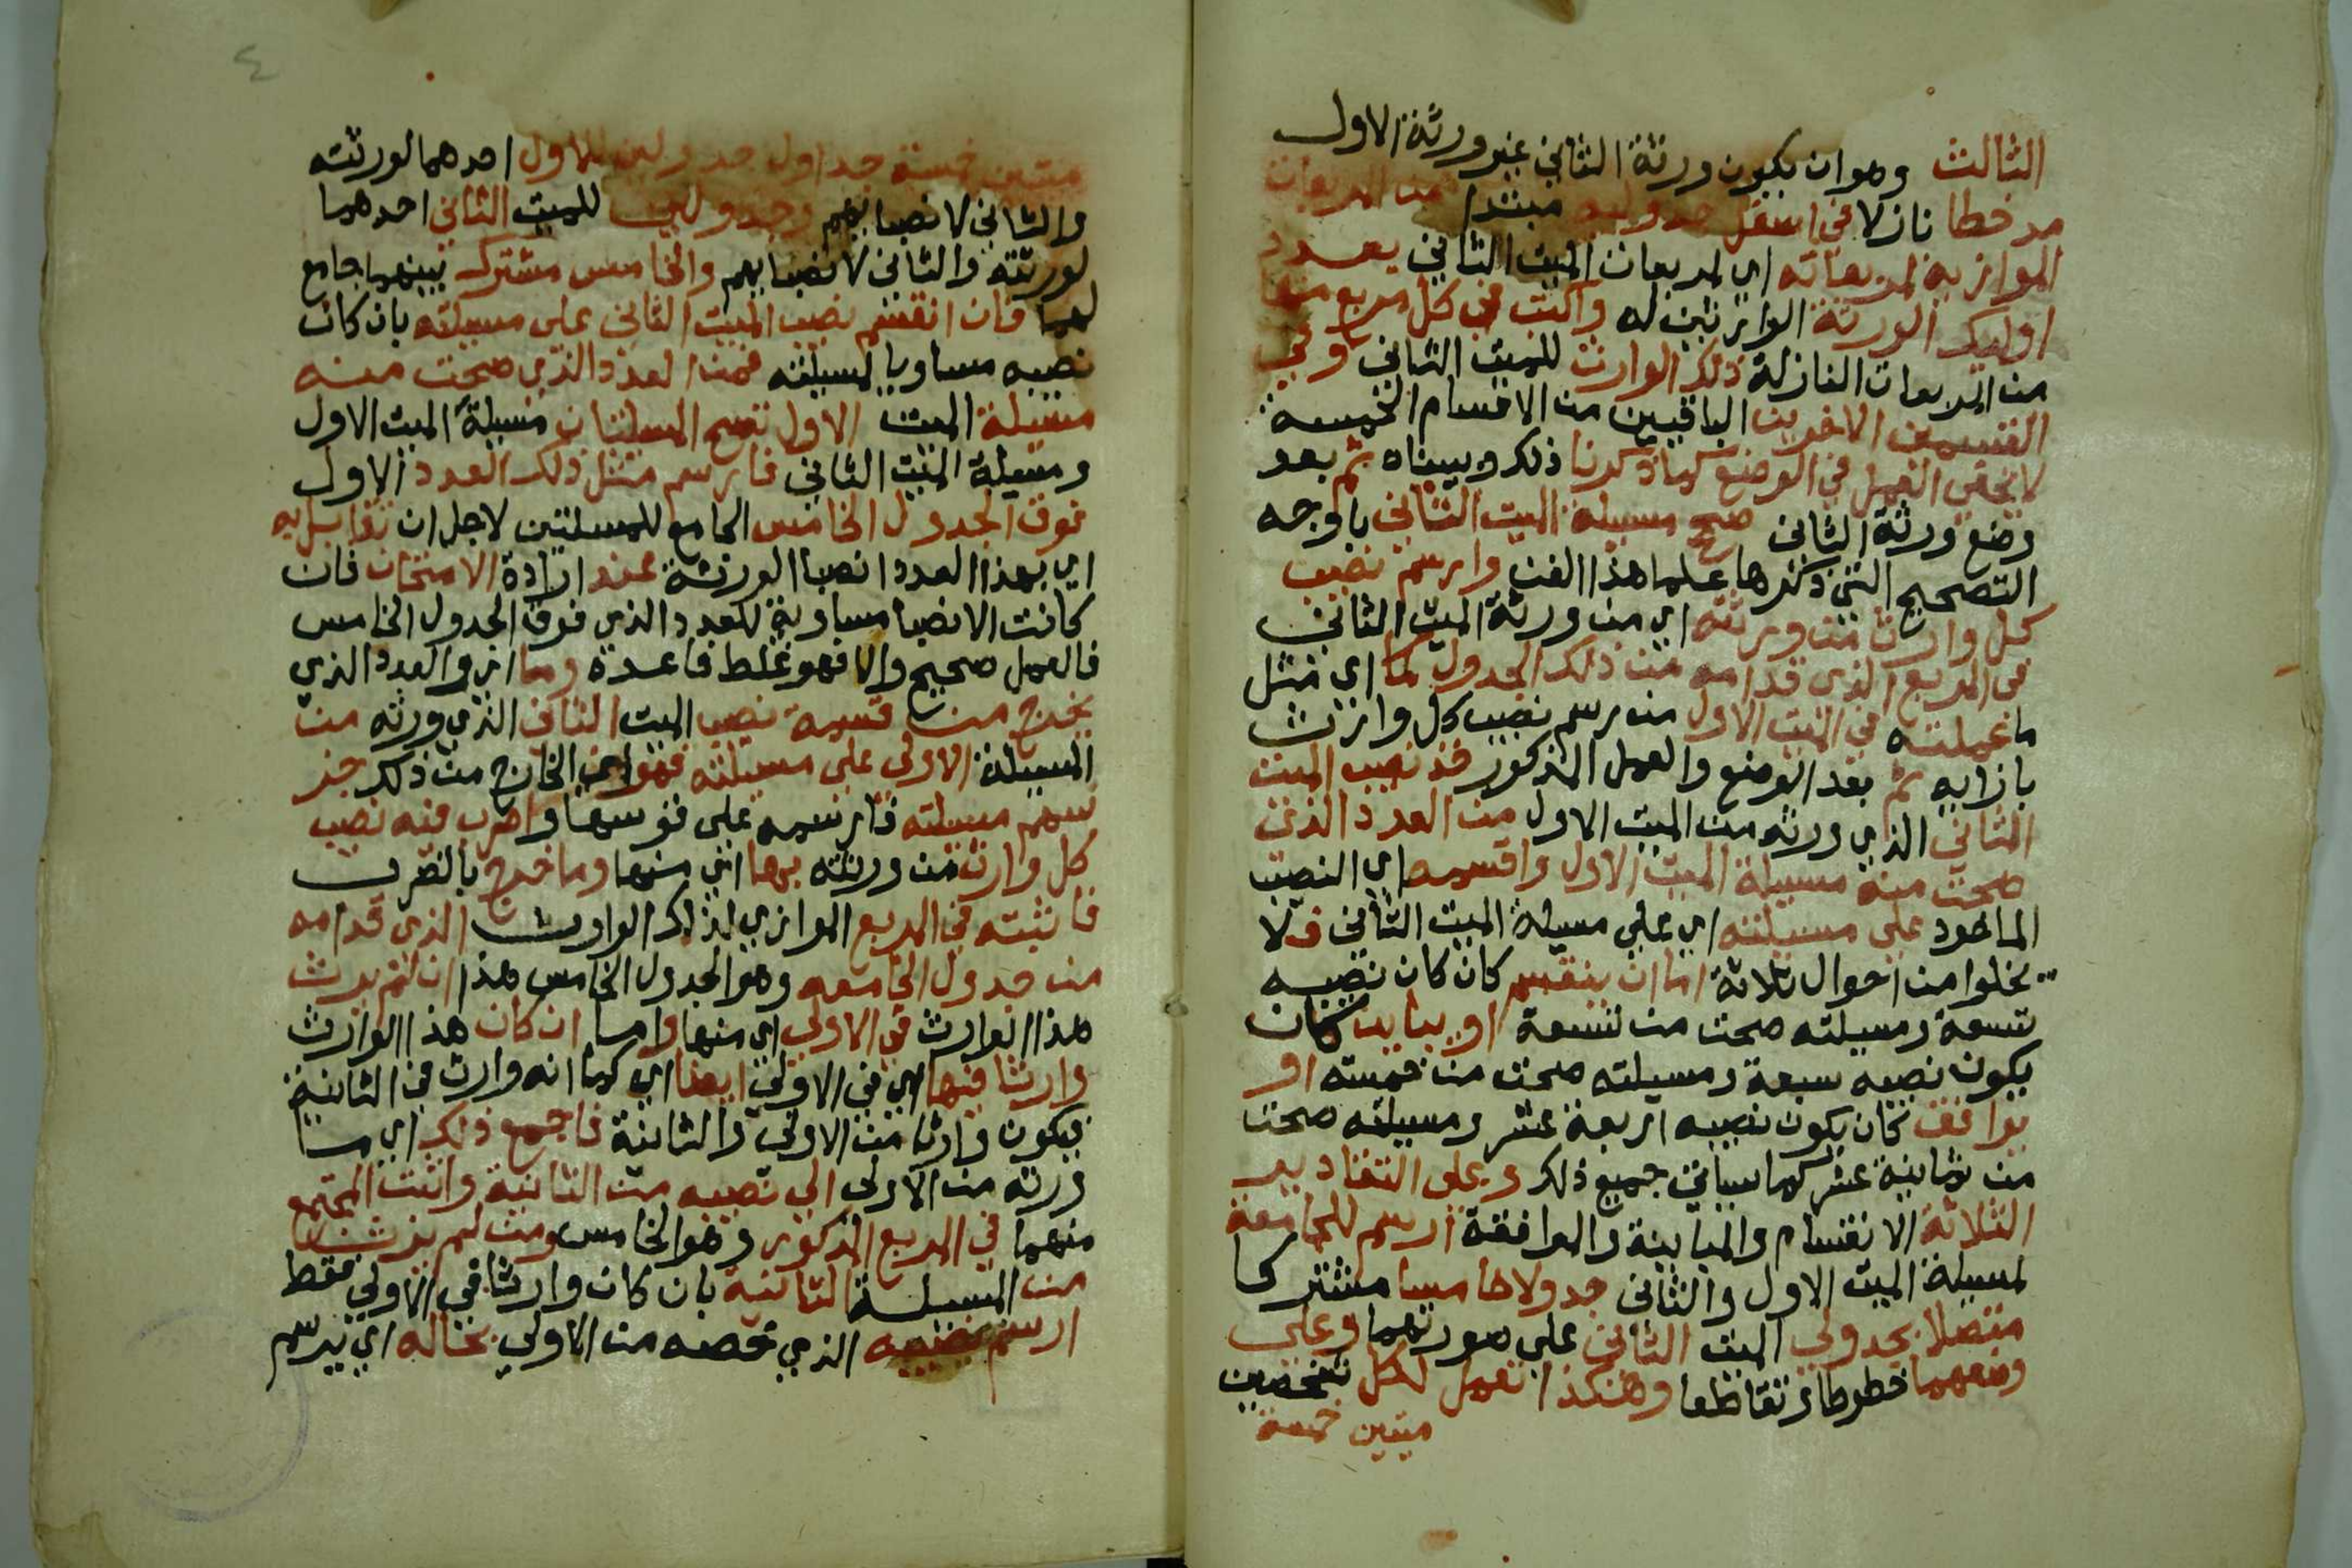 الثالث وهوان يكون ورثة الثاني غير ورثة الاول
مد خطا نازلا في اسفل جدوليه مبتدا من المربعات
الموازية لمربعاته اي لمربعات الميت الثاني بعدد
اوليك الورثة الوارثين له واكتب في كل مربع منها
من المربعات النازلة ذلك الوارث للميت الثاني وفي
القسمين الاخرين الباقيين من الاقسام الخمسة
لا يخفي العمل في الوضع كما ذكرنا ذلك وبيناه ثم بعد
وضع ورثة الثاني صحح مسيلة الميت الثاني باوجه
التصحيح التي ذكرها علما هذا الفن وارسم نصيب
كل وارث من ورثته اي من ورثة الميت الثاني
في المربع الذي قدامه من ذلك الجدول كما اي مثل
ما عملته في الميت الاول من رسم نصيب كل وارث
بازايه ثم بعد الوضع والعمل المذكور خذ نصيب الميت
الثاني الذي ورثه من الميت الاول من العدد الذي
صحت منه مسيلة الميت الاول واقسمه اي النصيب
الماخود علي مسيلته اي علي مسيلة الميت الثاني فلا
يخلوا من احوال ثلاثة اما ان ينقسم كان كان نصيبه
تسعة ومسيلته صحت من تسعة او يباين كان
يكون نصيبه سبعة ومسيلته صحت من خمسته او
يوافق كان يكون نصيبه اربعة عشر ومسيلته صحت
من ثمانية عشر كما سياتي جميع ذلك وعلى التقادير
الثلاثة الانقسام والمباينة والموافقة ارسم للجامعة
لمسيلة الميت الاول والثاني جدولا خامسا مشتركا
متصلا بجدولي الميت الثاني علي صورتهما وعلى
وضعهما خطوطا وتقاطعا وهكذا تعمل لكل شخصين
ميتين خمسة
ميتين خمسة جداول جدولين للاول احدهما لورثته
والثاني لانصبايهم وجدولين للميت الثاني احدهما
لورثته والثاني لانصبايهم والخامس مشترك بينهما جامع
لهما فان انقسم نصيب الميت الثاني على مسيلته بان كان
نصيبه مساويا لمسيلته فمن العدد الذي صحت منه
مسيلة الميت الاول تصح المسيلتان مسيلة الميت الاول
ومسيلة الميت الثاني فارسم مثل ذلك العدد الاول
فوق الجدول الخامس الجامع للمسلتين لاجل ان تقابل به
اي بهذا العدد انصبا الورثة عند ارادة الامتحان فان
كانت الانصبا مساوية للعدد الذي فوق الجدول الخامس
فالعمل صحيح والا فهو غلط فاعده وما اي والعدد الذي
يخرج من قسمة نصيب الميت الثاني الذي ورثه من
المسيلة الاولى على مسيلته فهو اي الخارج من ذلك جز
سهم مسيلته فارسمه على قوسها واضرب فيه نصيب
كل وارث من ورثته بها اي منها وما خرج بالضرب
فاثبته في المربع الموازي لذلك الوارث الذي قدامه
من جدول الجامعه وهو الجدول الخامس هذا ان لم يرث
هذا الوارث في الاولي اي منها واما ان كان هذا الوارث
وارثا فيها اي في الاولي ايضا اي كما انه وارث في الثانية
فيكون وارثا من الاولي والثانية فاجمع ذلك اي ما
ورثه من الاولى الي نصيبه من الثانية واثبت المجتمع
منهما في المربع المذكور وهو الخامس ومن لم يرث
من المسيلة الثانية بان كان وارثا في الاولي فقط
ارسم نصيبه الذي خصه من الاولي بحاله اي يرسم
٤